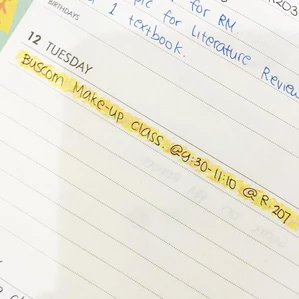 BIRTHDAYS
for RM
R203
pic for Literature Review
1 textbook.
12 TUESDAY
Buscom Make-up class @9:30-11:10 @ R.207